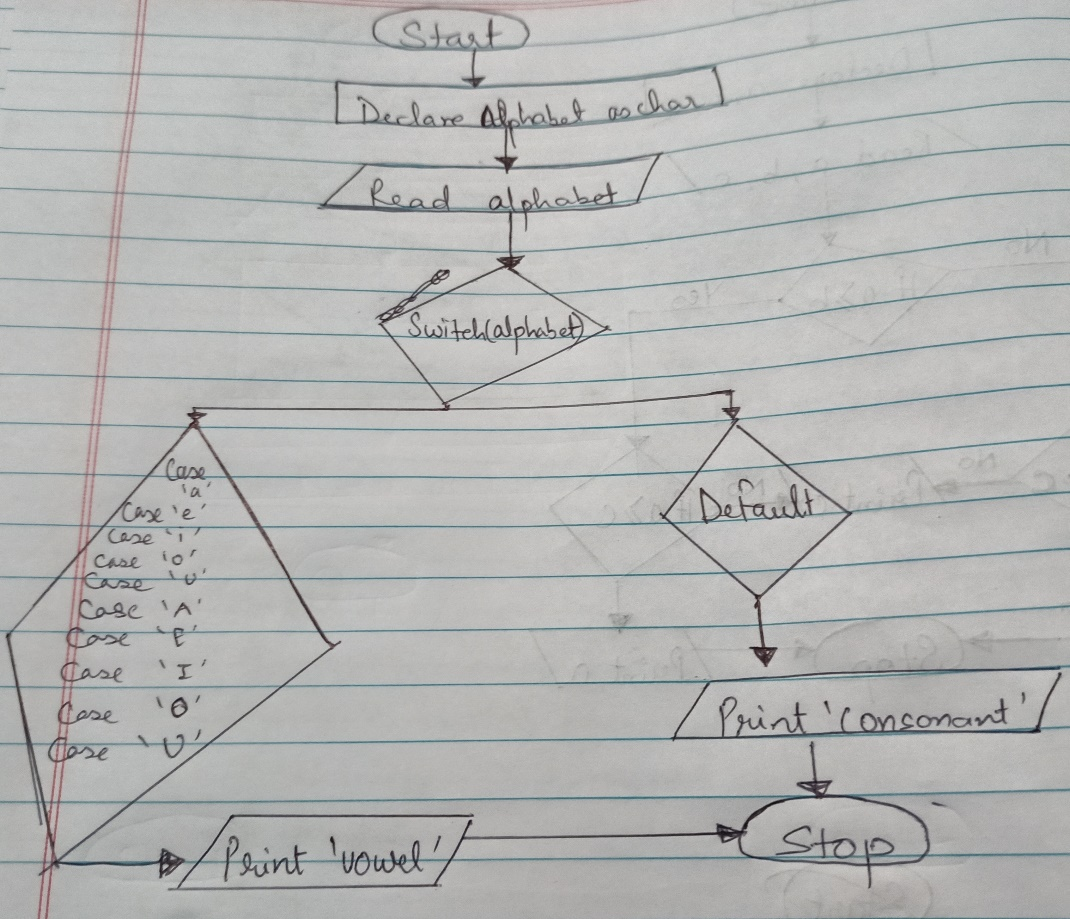 Start
Declare Alphabet as char
Read alphabet
Switch(alphabet)
Case
'a'
Case 'e'
Case 'i'
Case 'o'
Case 'u'
Case 'A'
Case 'E'
Case 'I'
Case 'O'
Case 'U'
Default
Print 'consonant'
Print 'vowel'
Stop